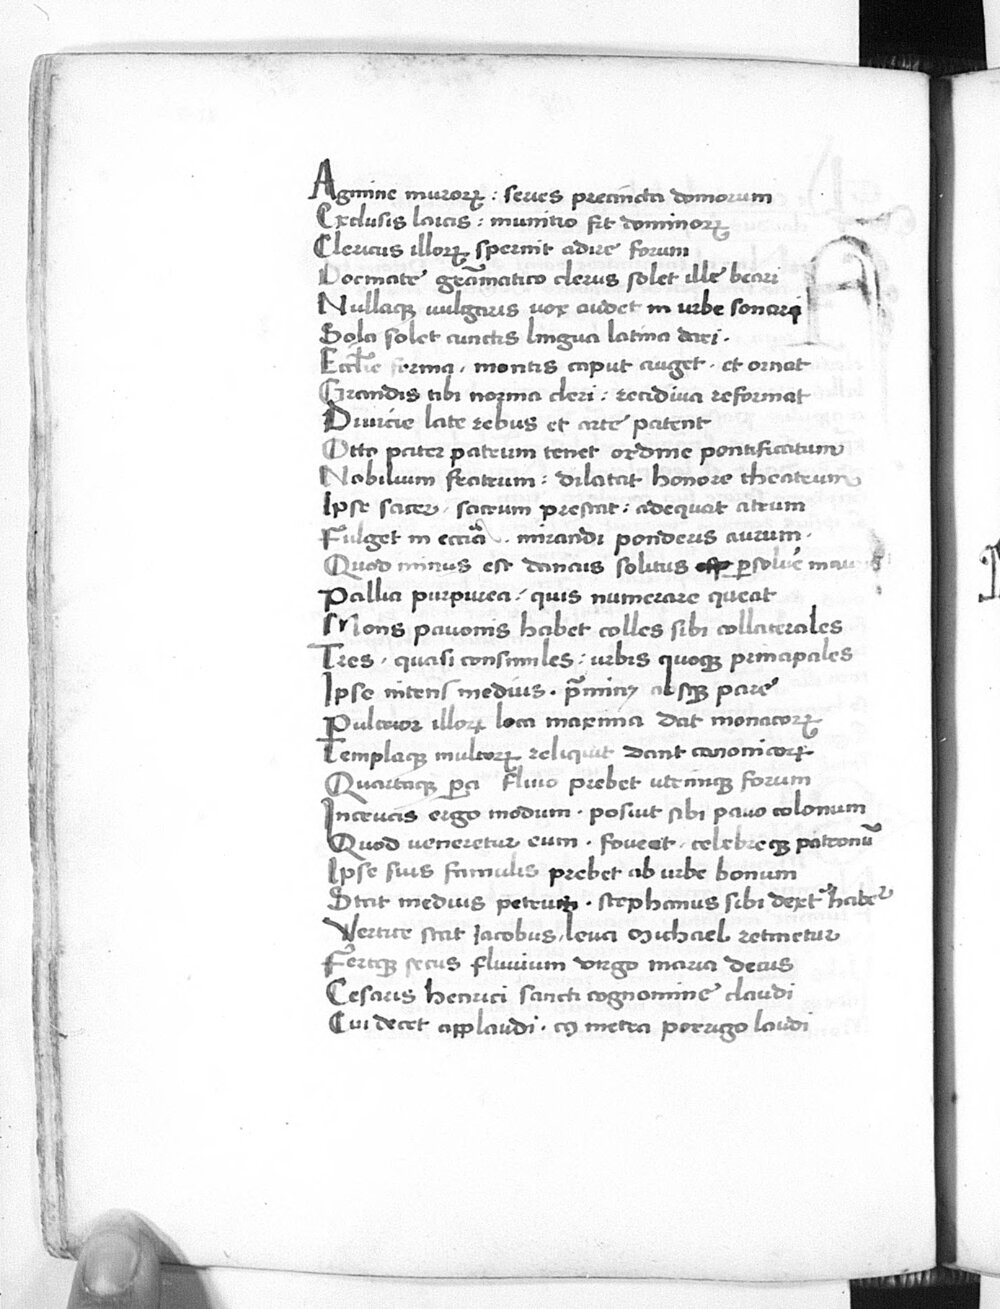 Agmine muroꝝ : series precincta domorum
Exclusis laicis : munitio fit dominoꝝ
Clericus illoꝝ spernit adire forum
Docmate gramatico clerus solet ille beari
Nullaqꝫ vulgaris vox audet in urbe sonari
Sola solet cunctis lingua latina dari .
Eccłie forma . montis caput auget . et ornat
Grandis tibi norma cleri : recidiua reformat
Diuicie late rebus et arte patent
Otto pater patrum tenet ordine pontificatum
Nobilium fratrum : dilatat honore theatrum
Ipse sacer . sacrum prestat : adequat atrum
Fulget in eccīa . mirandi ponderis aurum .
Quod minus est dancis solitus ꝑsolue
Pallia purpurea : quis numerare queat
Mons pauonis habet colles sibi collaterales
Tres . quasi consimiles : urbis quoqꝫ principales
Ipse nitens medius . absqꝫ pare
Pulcrior illoꝝ loca maxima dat monacoꝝ
Templaqꝫ multoꝝ reliquit dant canonicoꝝ
Quartaqꝫ ꝑs fluuio prebet utrimqꝫ forum
Inceucis ergo modum . posuit sibi pauo colonum
Quod ueneretur eum . foueat . celebreqꝫ patronū
Ipse suis famulis prebet ab urbe bonum
Stat medius petrum . stephanus sibi dextra habet
Vertice stat Jacobus, leua Michael retinetur
Fertqꝫ secus fluuium virgo maria decus
Cesaris henrici sancti cognomine claudi
Cui decet applaudi . metra porrigo laudi